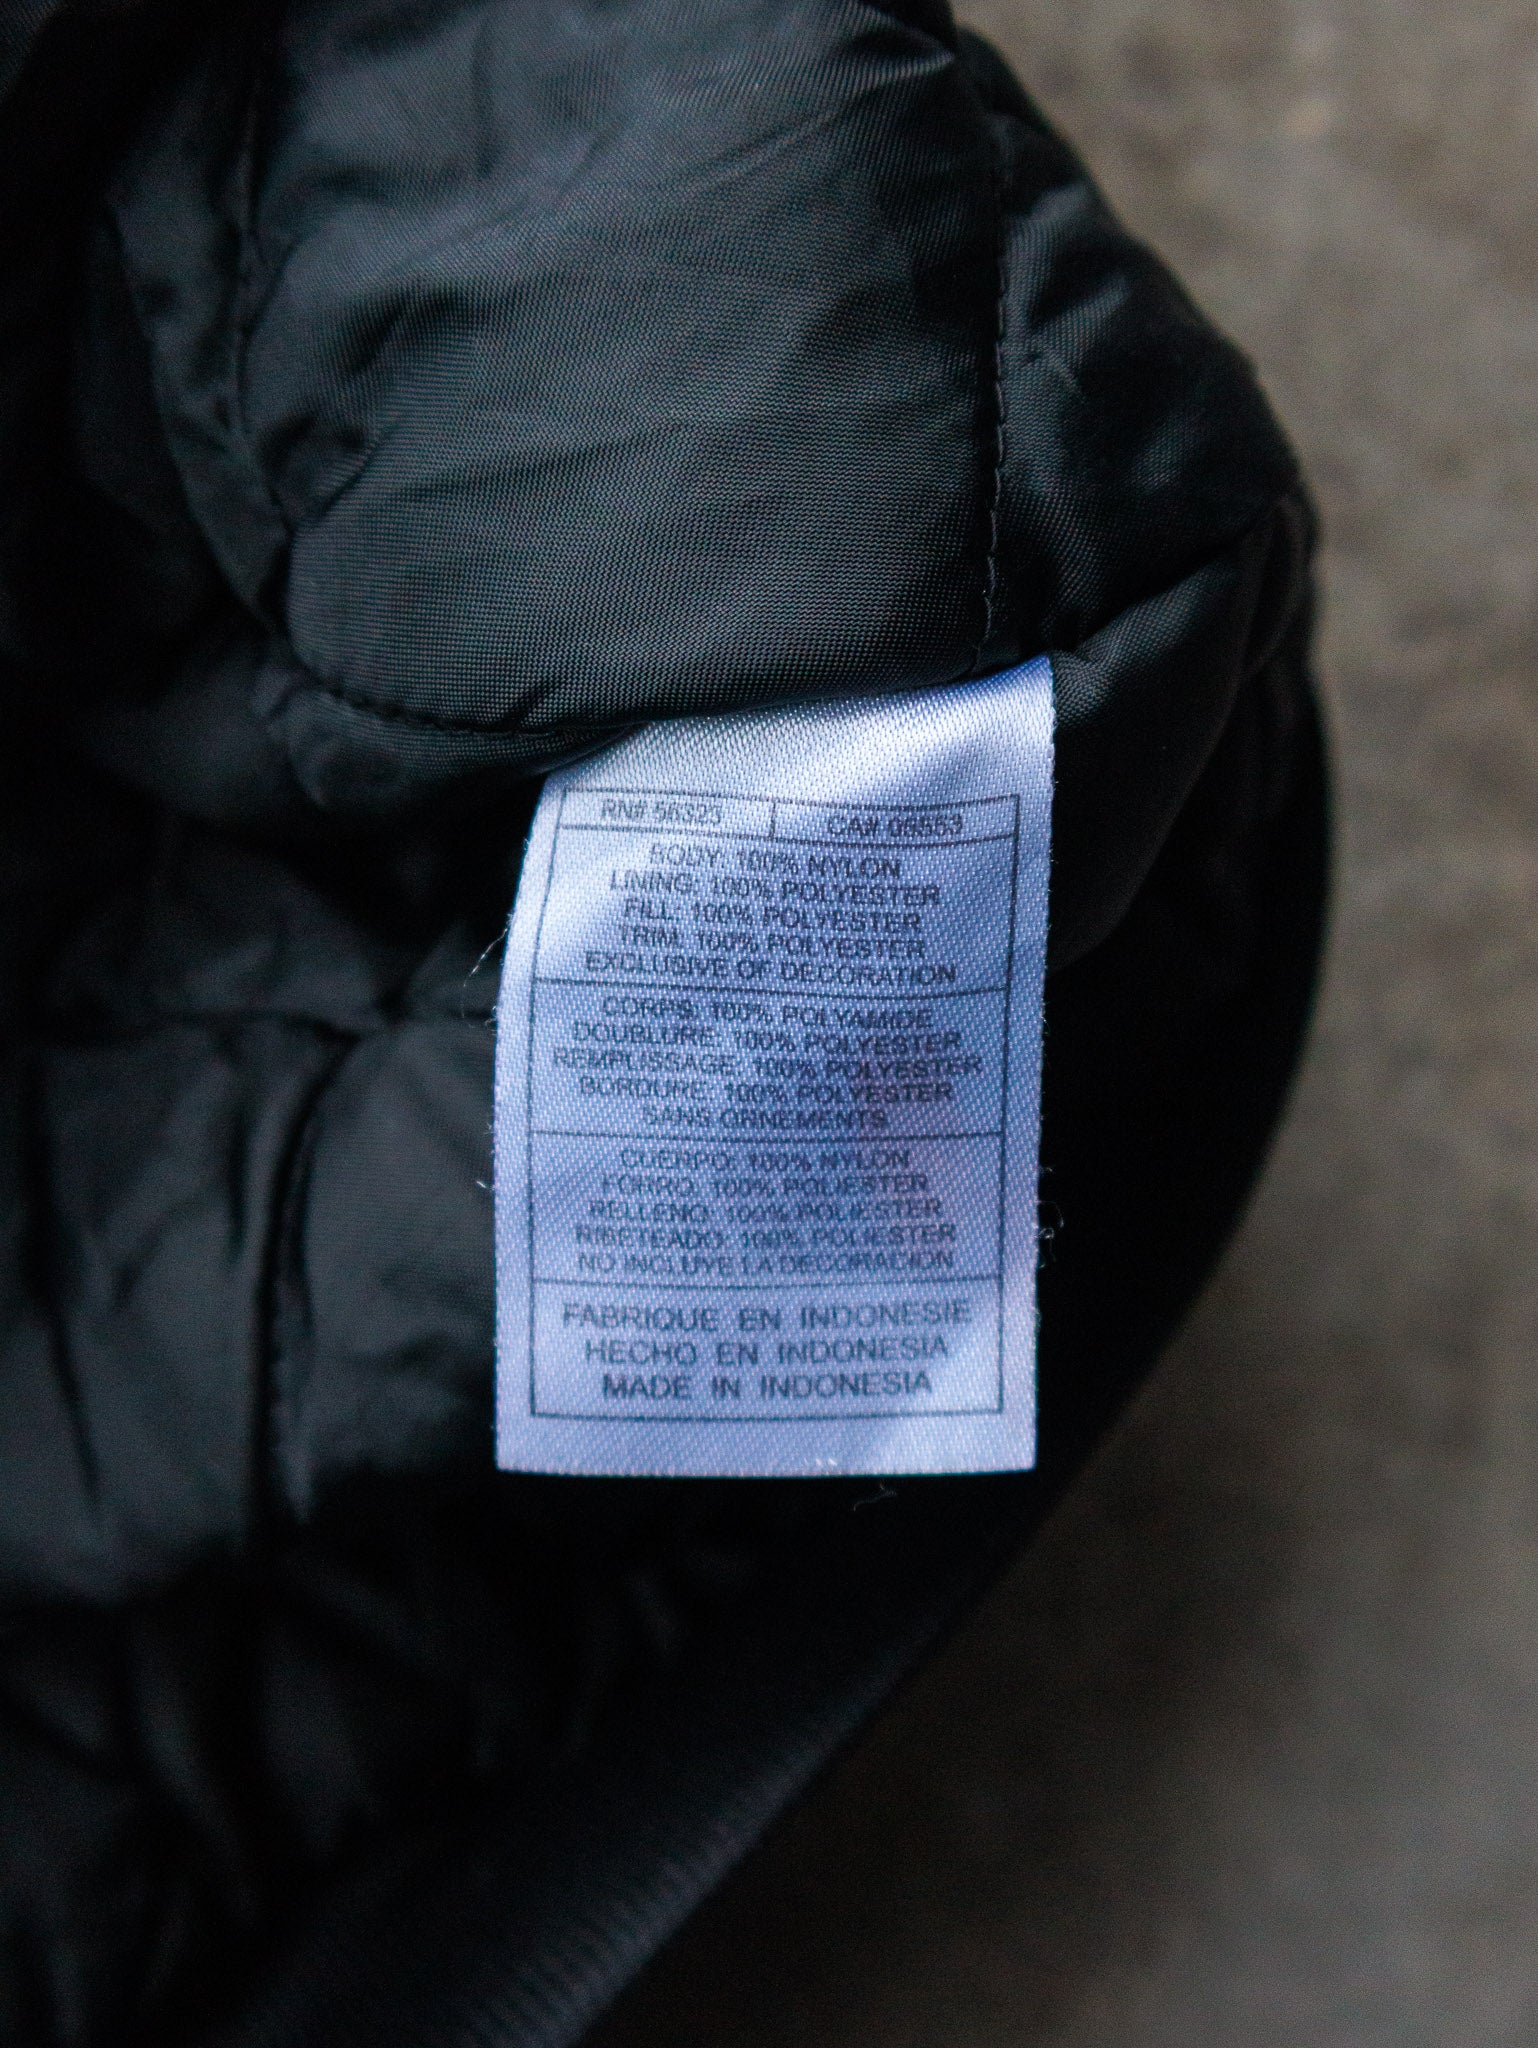 RN# 56323 CA# 05553
BODY: 100% NYLON
LINING: 100% POLYESTER
FILL: 100% POLYESTER
TRIM: 100% POLYESTER
EXCLUSIVE OF DECORATION
CORPS: 100% POLYAMIDE
DOUBLURE: 100% POLYESTER
REMPLISSAGE: 100% POLYESTER
BORDURE: 100% POLYESTER
SANS ORNEMENTS
CUERPO: 100% NYLON
FORRO: 100% POLIESTER
RELLENO: 100% POLIESTER
RIBETEADO: 100% POLIESTER
NO INCLUYE LA DECORACION
FABRIQUE EN INDONESIE
HECHO EN INDONESIA
MADE IN INDONESIA